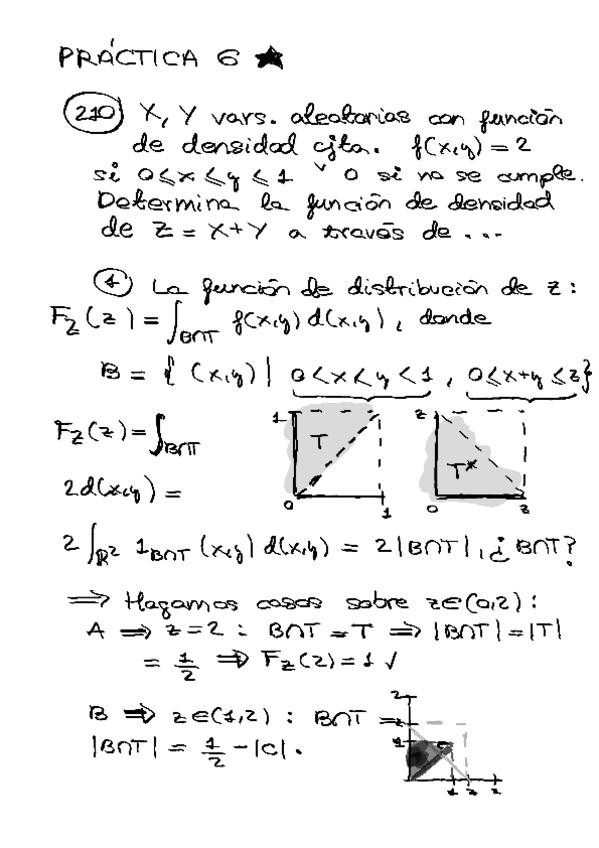 PRÁCTICA 6 ★
210 X, Y vars. aleatorias con función
de densidad cjta. f(x,y) = 2
si 0≤x≤y≤1 y 0 si no se cumple.
Determina la función de densidad
de Z = X+Y a través de ...
1 La función de distribución de z:
F_Z(z) = ∫_{B∩T} f(x,y) d(x,y), donde
B = { (x,y) | 0<x<y<1, 0≤x+y≤z}
F_Z(z) = ∫_{B∩T}
2d(x,y) =
1 T 0 1
z T* 0 z
2 ∫_{ℝ²} 1_{B∩T} (x,y) d(x,y) = 2|B∩T|, ¿B∩T?
⟹ Hagamos casos sobre z∈(0,2):
A ⟹ z=2 : B∩T = T ⟹ |B∩T|=|T|
= 1/2 ⟹ F_Z(2)=1 √
B ⟹ z∈(1,2) : B∩T =
|B∩T| = 1/2 - |C|.
2 z 1 C 1 z 2